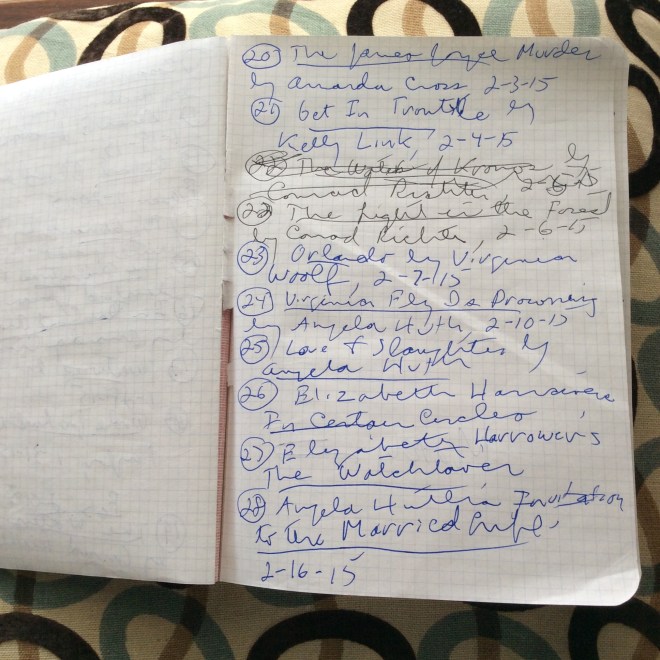 20 The James Joyce Murder
by Amanda Cross 2-3-15
21 Get In Trouble by
Kelly Link, 2-4-15
22 The Watch of Kronos by
Conrad Richter,
22 The Light in the Forest
by Conrad Richter, 2-6-15
23 Orlando by Virginia
Woolf, 2-7-15
24 Virginia Fly Is Drowning
by Angela Huth, 2-10-15
25 Love & Slaughter by
Angela Huth
26 Elizabeth Harrower's
In Certain Circles
27 Elizabeth Harrower's
The Watchtower
28 Angela Huth's Invitation
to the Married Life,
2-16-15